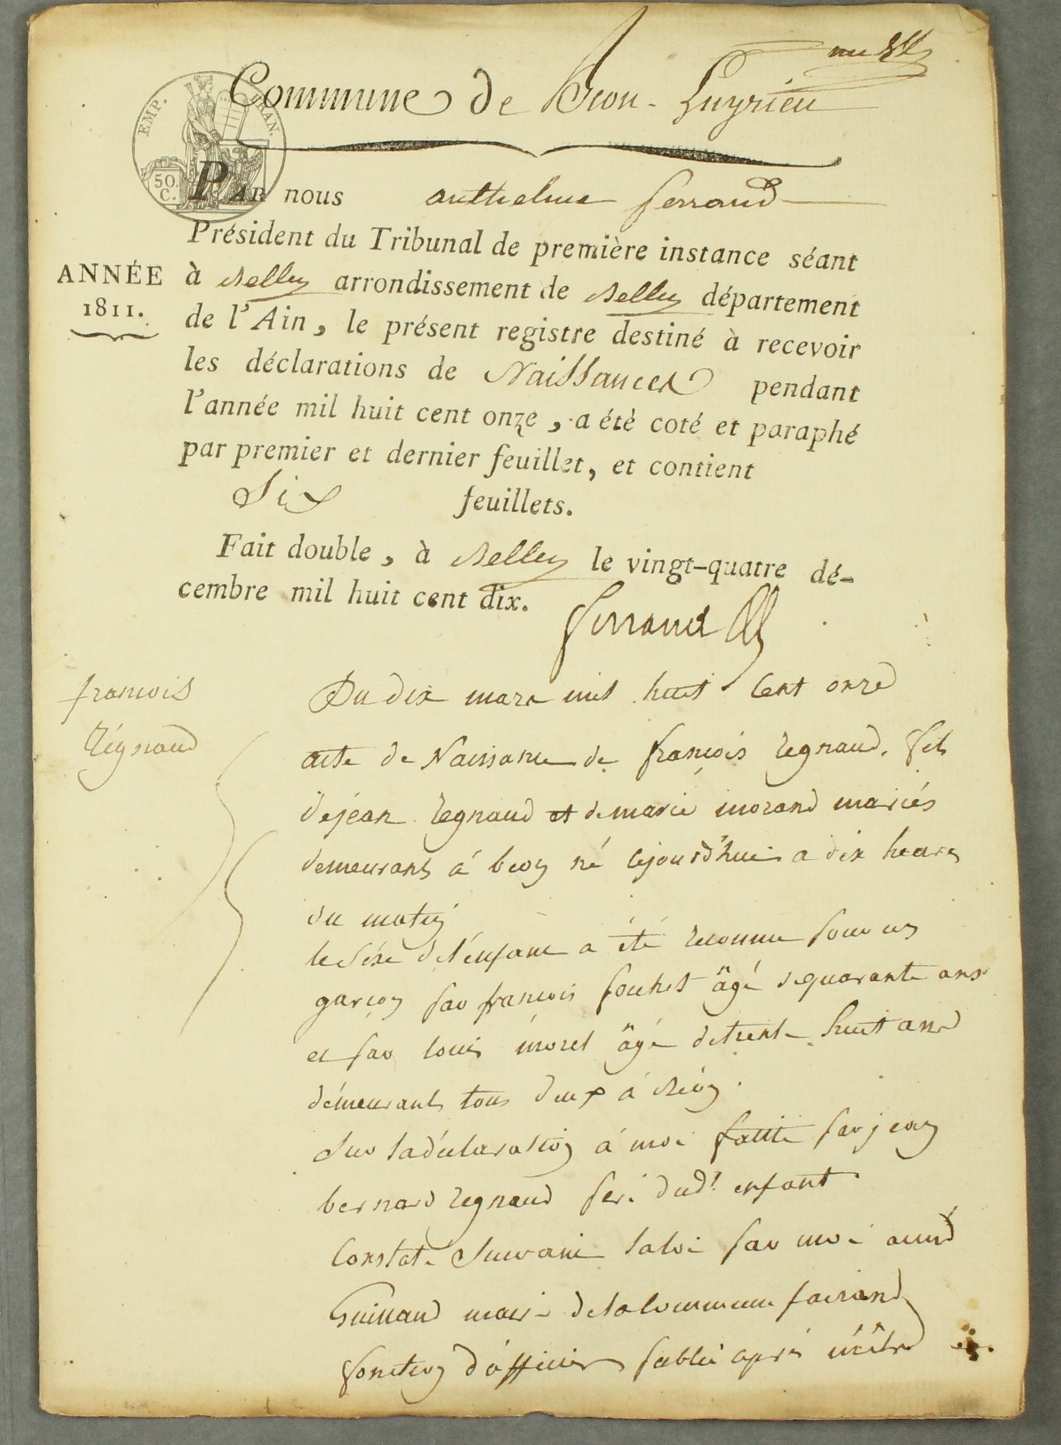 Commune de Béon-Luyrieu
EMP. FRAN.
50. C.
PAR nous anthelme ferrand
Président du Tribunal de première instance séant
ANNÉE
1811.
à Belley arrondissement de Belley département
de l'Ain, le présent registre destiné à recevoir
les déclarations de Naissances pendant
l'année mil huit cent onze, a été coté et paraphé
par premier et dernier feuillet, et contient
Six feuillets.
Fait double, à Belley le vingt-quatre dé-
cembre mil huit cent dix.
ferrand
françois
Régnaud
Du dix mars mil huit Cent onze
acte de Naissance de françois Regnaud, fils
de jean Regnaud et de marie morand mariés
demeurants á beon né cejourd'huis a dix heures
du matin
le séxe de l'énfant a été reconnu pour un
garçon par françois fouhet âgé de quarante ans
et par louis morel âgé de trente huit ans
démeurants tous deux á Béon.
Sur la déclaration á moi faitte par jean
bernard Regnaud peré dudt enfant
Constaté Suivant la loi par moi
maire de la Commune faisant
fonction d'officier public aprés